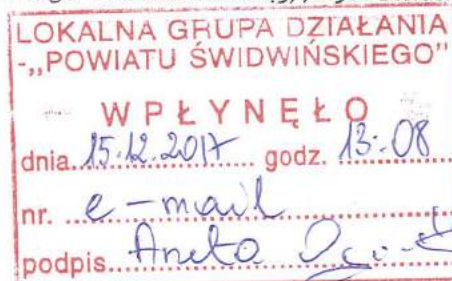 LOKALNA GRUPA DZIAŁANIA
-„POWIATU ŚWIDWIŃSKIEGO”
WPŁYNĘŁO
dnia 15.12.2017 godz. 13:08
nr. e-mail
podpis Aneta